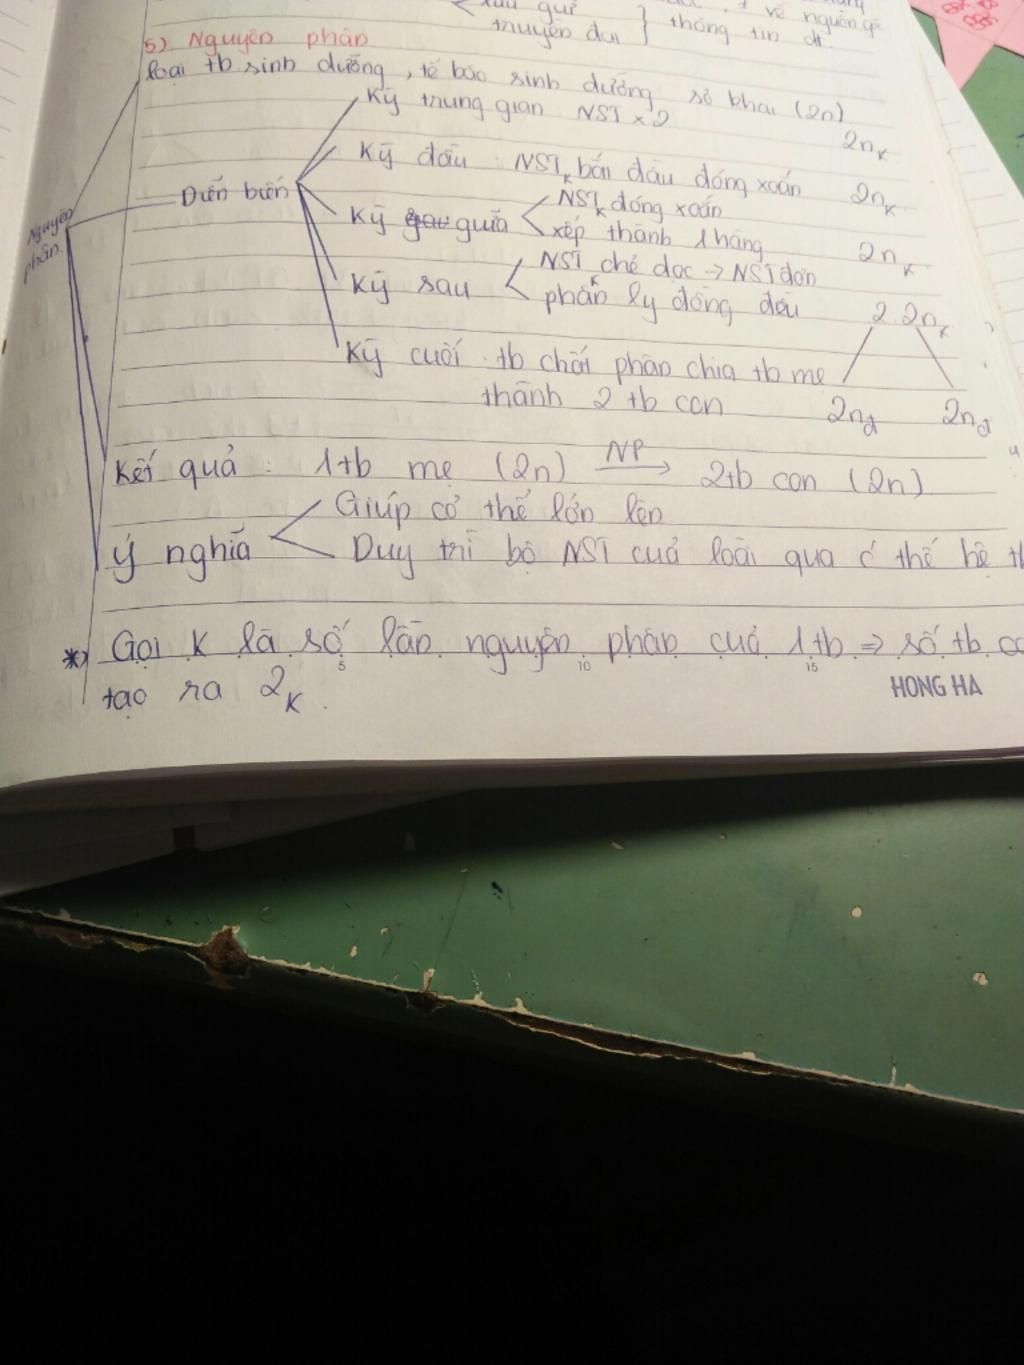 lưu giữ
truyền đạt } thông tin dt. về nguồn gố
5) Nguyên phân
loại tb sinh dưỡng, tế bào sinh dưỡng sơ khai (2n)
Kỳ trung gian : NST x 2 2nK
Kỳ đầu : NSTK bắt đầu đóng xoắn 2nK
Nguyên phân. Diễn biến
Kỳ giữa < NSTK đóng xoắn
xếp thành 1 hàng 2nK
Kỳ sau < NSTK chẻ dọc → NST đơn
phân ly đồng đều 2.2nK
Kỳ cuối : tb chất phân chia tb mẹ
thành 2 tb con 2nđ 2nđ
Kết quả : 1tb mẹ (2n) NP → 2tb con (2n)
Ý nghĩa < Giúp cơ thể lớn lên
Duy trì bộ NST của loài qua thế hệ
*) Gọi K là số lần nguyên phân của 1tb ⇒ số tb
tạo ra 2K.
5 10 15
HONG HA